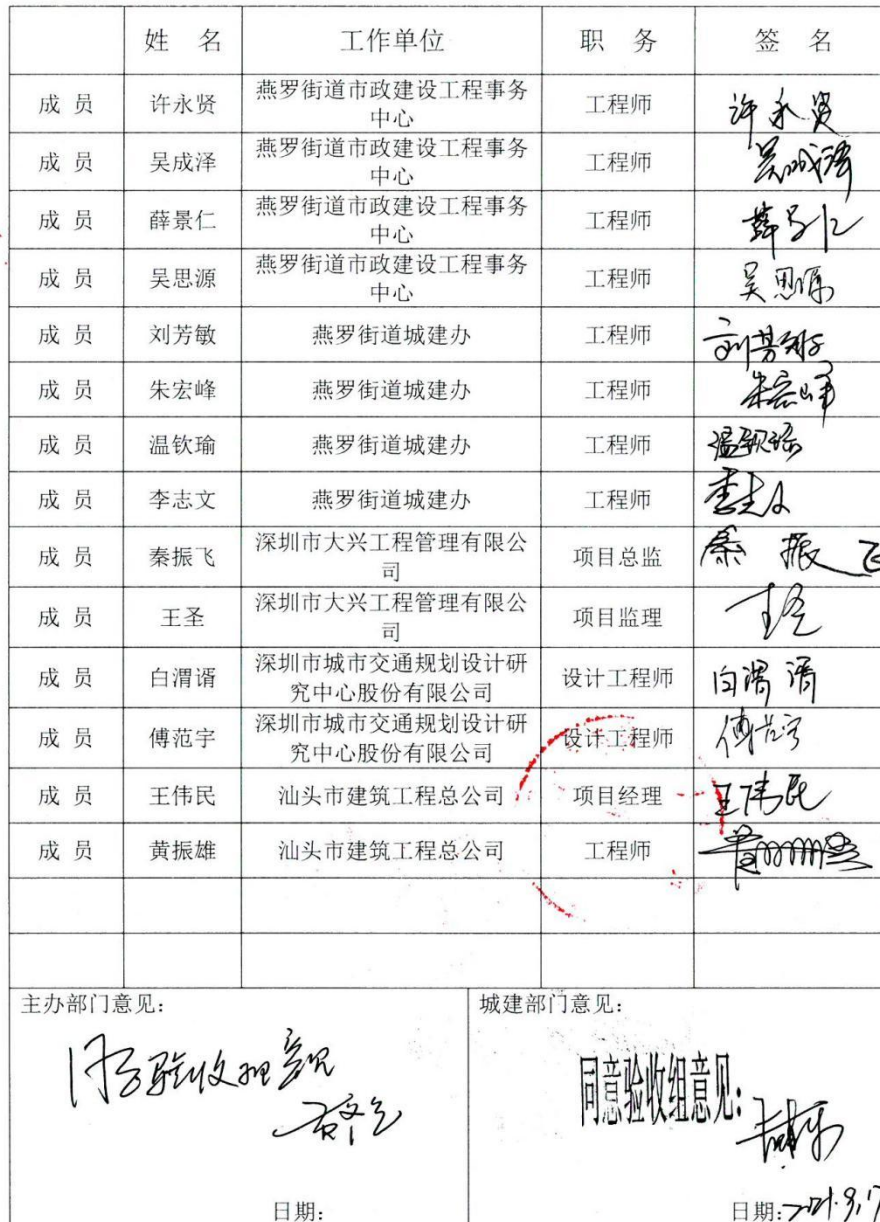 姓 名 工作单位 职 务 签 名
成 员 许永贤 燕罗街道市政建设工程事务 工程师 许永贤
中心
成 员 吴成泽 燕罗街道市政建设工程事务 工程师 吴成泽
中心
成 员 薛景仁 燕罗街道市政建设工程事务 工程师 薛景仁
中心
成 员 吴思源 燕罗街道市政建设工程事务 工程师 吴思源
中心
成 员 刘芳敏 燕罗街道城建办 工程师 刘芳敏
成 员 朱宏峰 燕罗街道城建办 工程师 朱宏峰
成 员 温钦瑜 燕罗街道城建办 工程师 温钦瑜
成 员 李志文 燕罗街道城建办 工程师 李志文
成 员 秦振飞 深圳市大兴工程管理有限公 项目总监 秦振飞
司
成 员 王圣 深圳市大兴工程管理有限公 项目监理 王圣
司
成 员 白渭谞 深圳市城市交通规划设计研 设计工程师 白渭谞
究中心股份有限公司
成 员 傅范宇 深圳市城市交通规划设计研 设计工程师 傅范宇
究中心股份有限公司
成 员 王伟民 汕头市建筑工程总公司 项目经理 王伟民
成 员 黄振雄 汕头市建筑工程总公司 工程师
主办部门意见：
同意验收组意见
日期：
城建部门意见：
同意验收组意见：
日期：2021.9.17